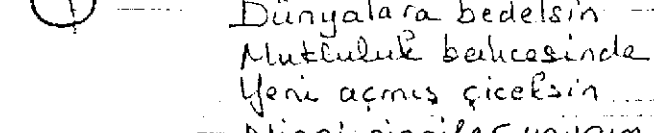 Dünyalara bedelsin
Mutluluk bahcesinde
Yeni açmış çiceksin
Ninni